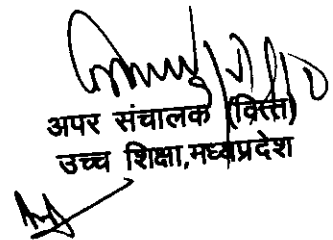 अपर संचालक (वित्त)
उच्च शिक्षा,मध्यप्रदेश